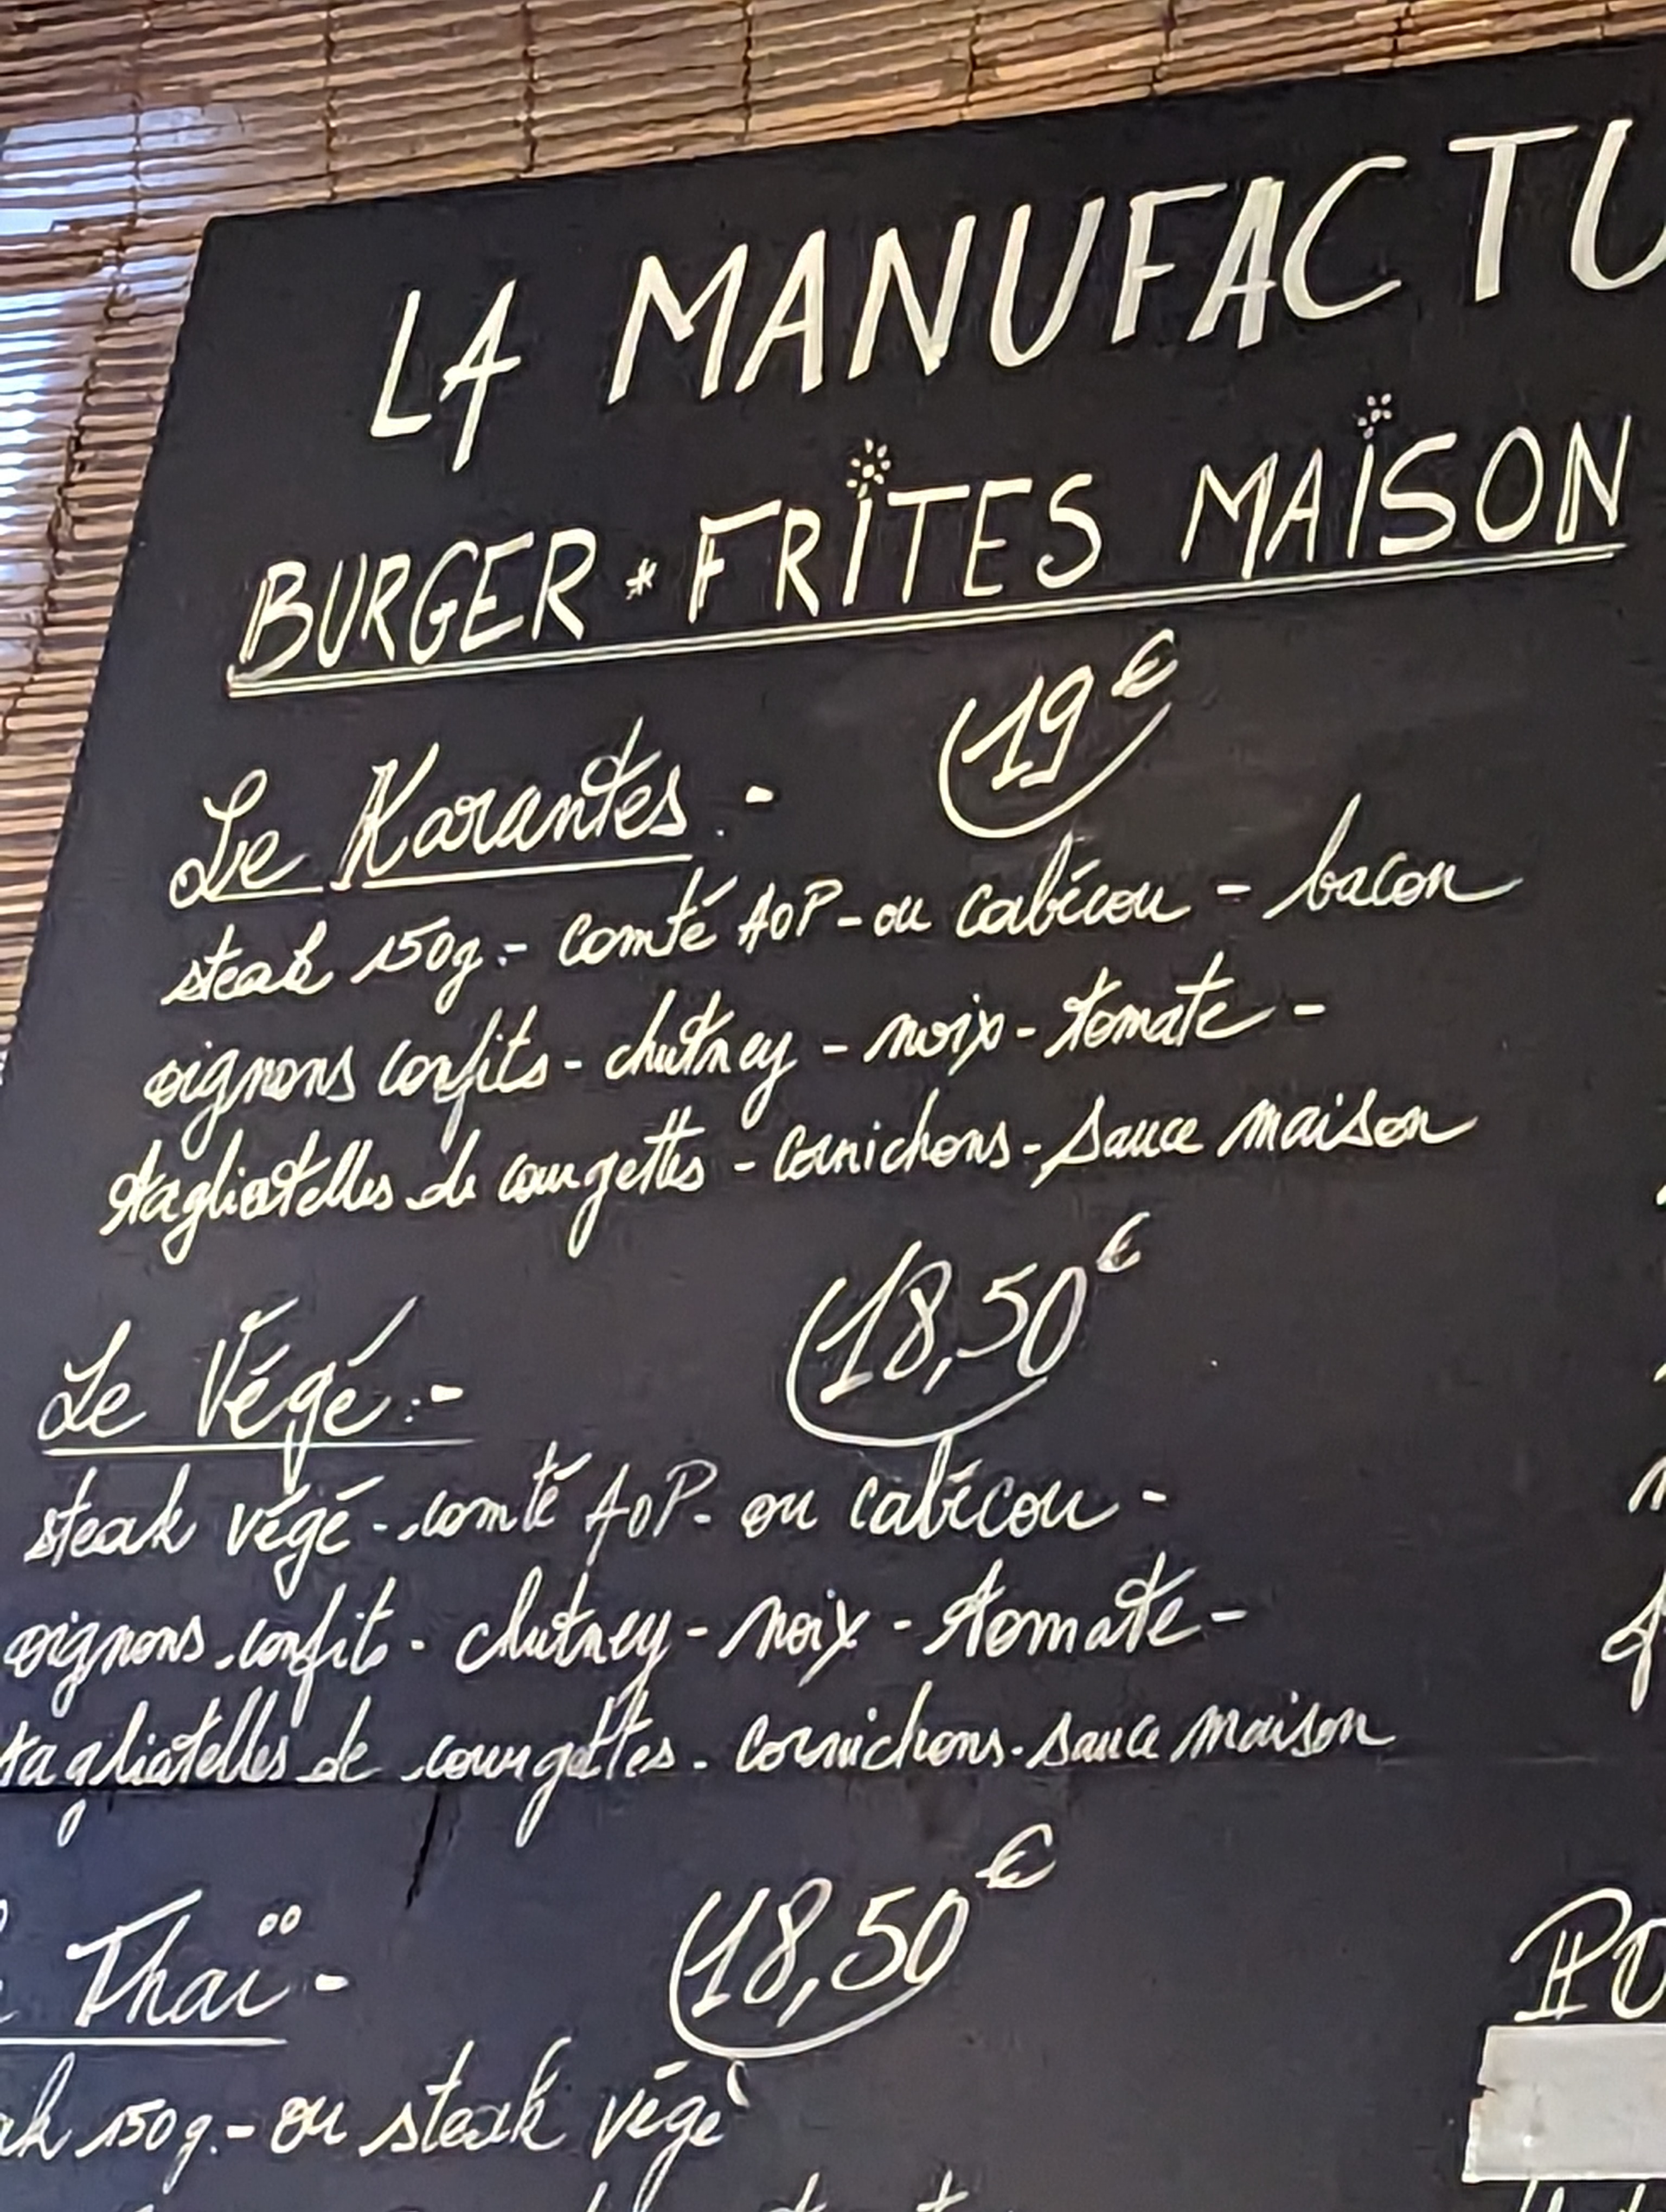 LA MANUFACTU
BURGER * FRITES MAISON
Le Karantes - 19€
steak 150g - comté AOP - ou cabécou - bacon
oignons confits - chutney - noix - tomate -
tagliatelles de courgettes - cornichons - sauce maison
Le Végé - 18,50€
steak végé - comté AOP - ou cabécou -
oignons confits - chutney - noix - tomate -
tagliatelles de courgettes - cornichons - sauce maison
Thaï - 18,50€
150g - ou steak végé
PO